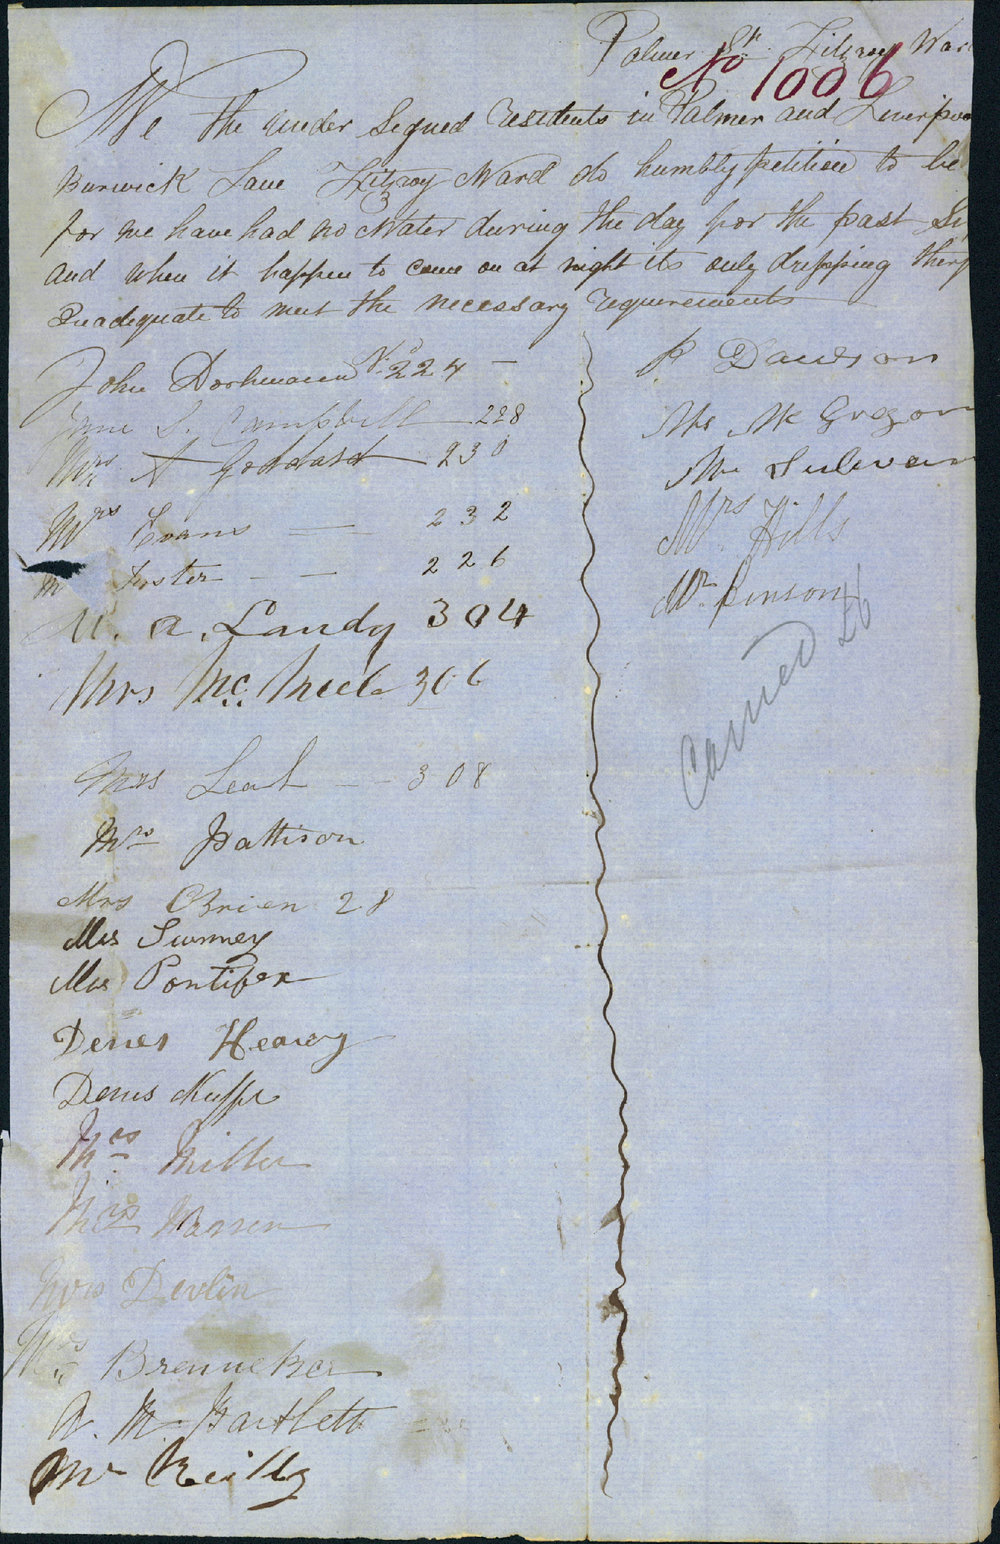 Palmer St. Fitzroy War
No 1006
We the under Signed residents in Palmer and Liverpoo
Burwick Lane Fitzroy Ward do humbly petition to be
for we have had no Water during the day for the past
and when it happen to come on at night its only dripping
Inadequate to meet the necessary requirements
John No 224
Jane S. Campbell 228
Mrs A Goddard 230
Mrs Evans 232
M Foster 226
M. A. Landy 304
Mrs Mc. 306
Mrs Leah 308
Mrs Pattison
Mrs OBrien 28
Mrs Summey
Mrs Pontifex
Denes Hearey
Denis
Mrs Miller
Mrs
Mrs Devlin
Mrs Brenneker
A. M. Bartlett
Mr Reilly
R Dawson
Mrs Mc Gregor
Mr Sulivan
Mrs Hills
Mr. Benson
Carried 26